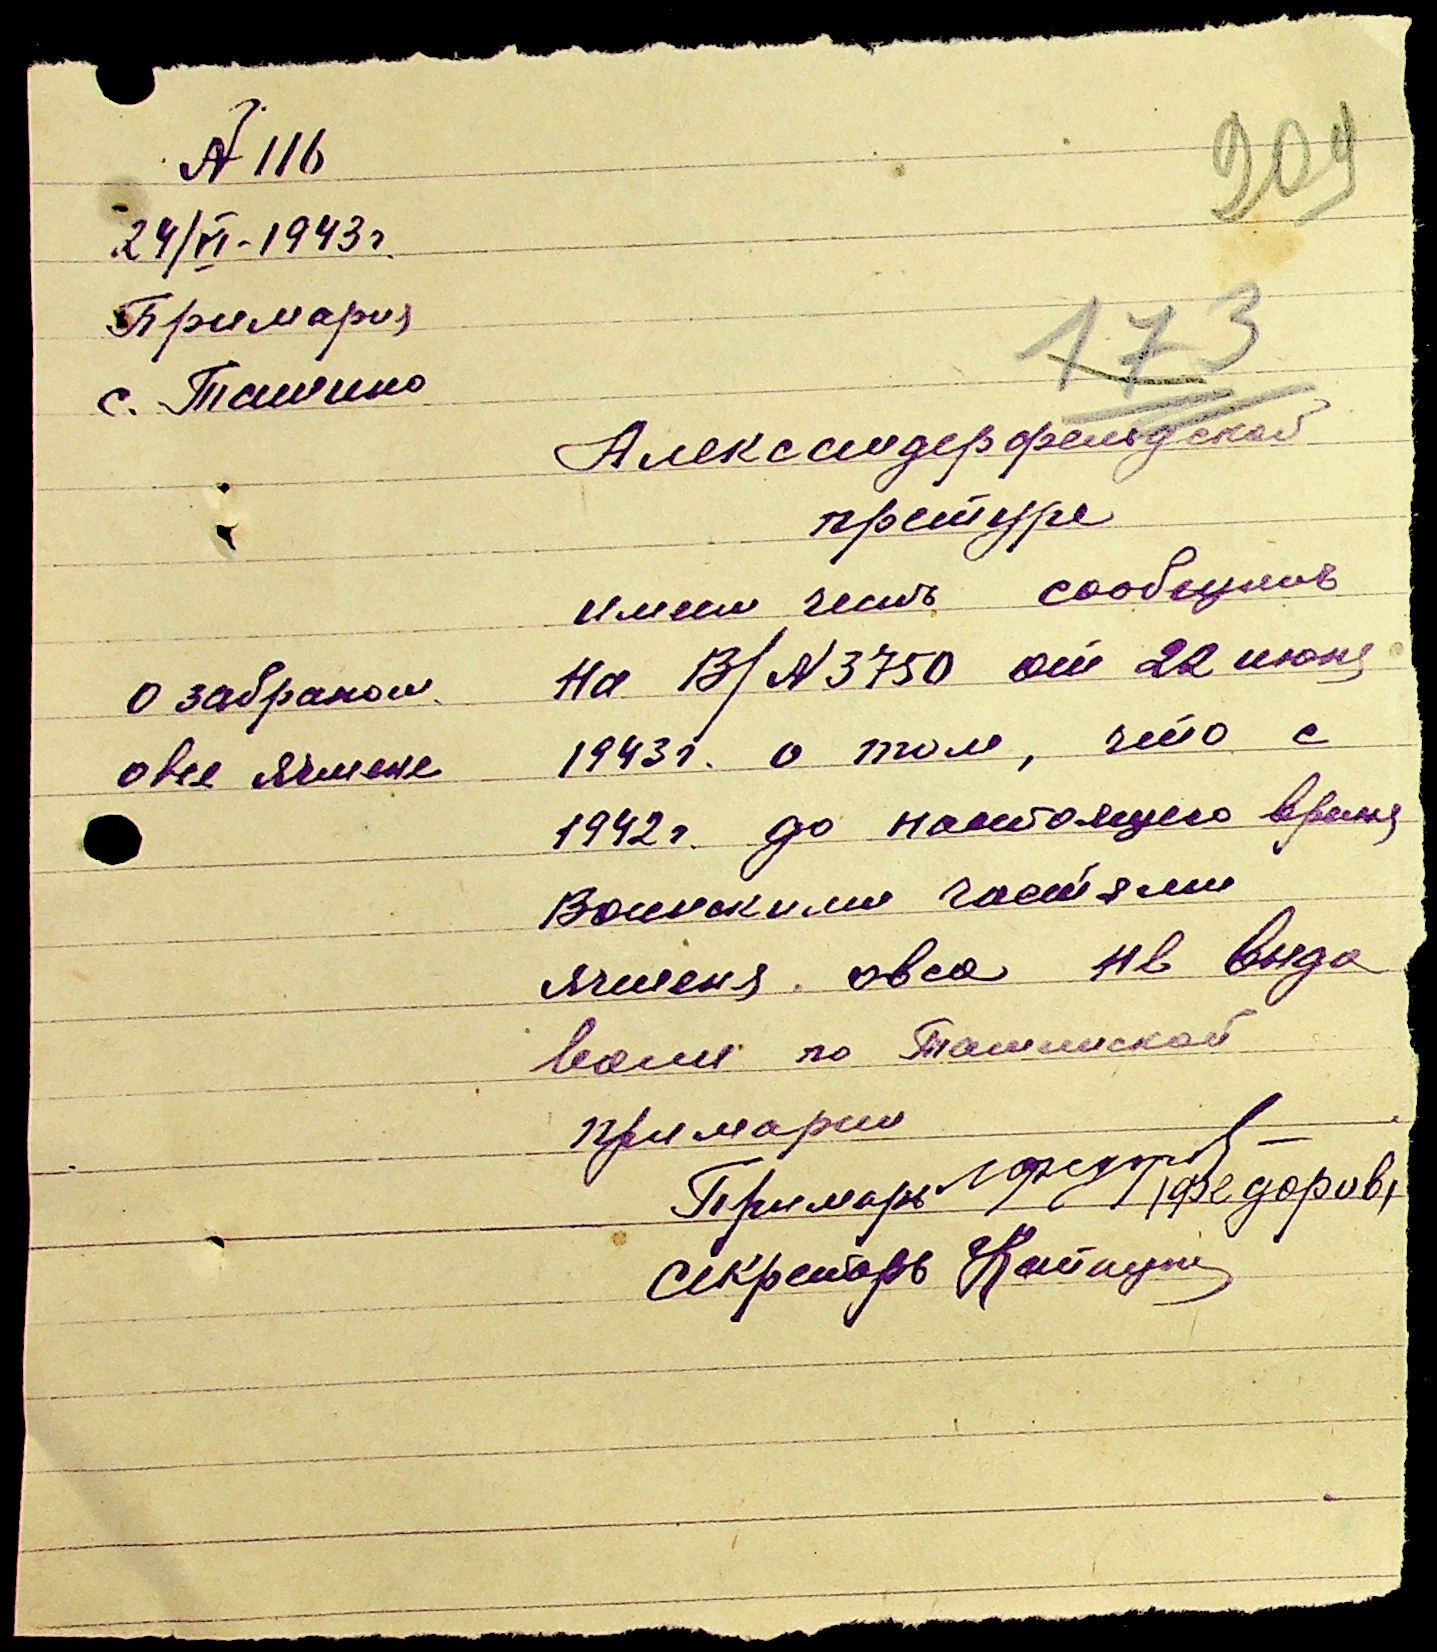 209
№ 116
24/VI-1943 г.
173
Примария
с. Ташино
Александерфельдской
претуре
имею честь сообщить
о забраном
На В/№3750 от 22 июня
овсе ячмене
1943 г. о том, что с
1942 г. до настоящего время
Воинскими частями
ячменя овса не выда
вали по Ташинской
примарии
Примарь (Федоров)
Секретарь